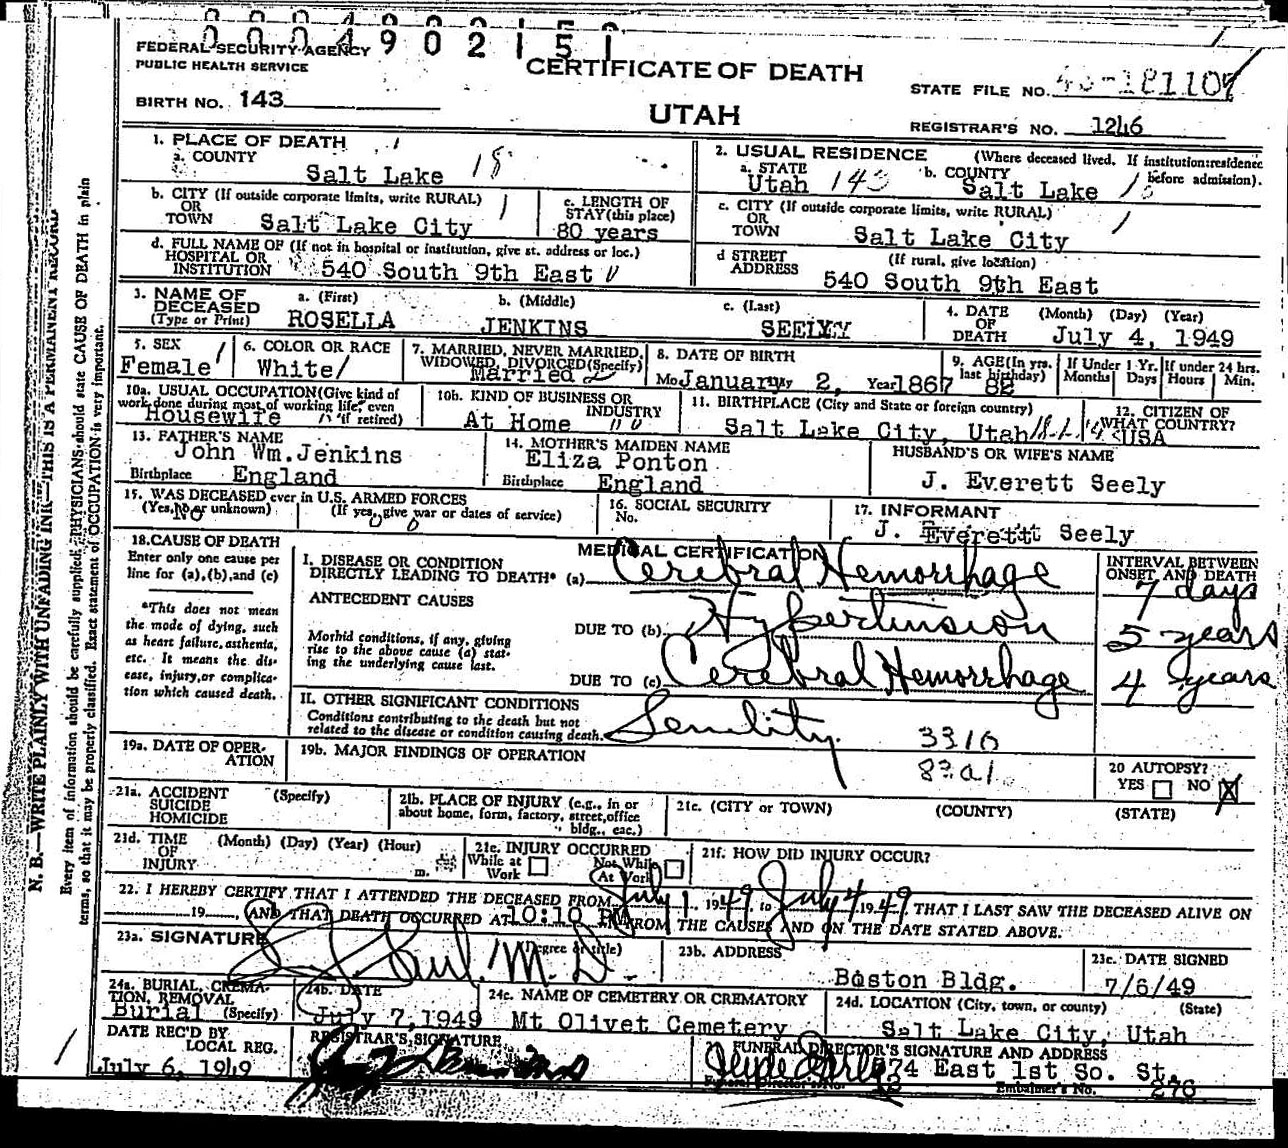 0004902151
FEDERAL SECURITY AGENCY
PUBLIC HEALTH SERVICE
CERTIFICATE OF DEATH
STATE FILE NO.
BIRTH NO. 143
UTAH
REGISTRAR'S NO. 1246
1. PLACE OF DEATH
a. COUNTY
Salt Lake 18
2. USUAL RESIDENCE (Where deceased lived. If institution:residence before admission).
a. STATE Utah 143 b. COUNTY Salt Lake
b. CITY (If outside corporate limits, write RURAL)
OR
TOWN Salt Lake City
c. LENGTH OF
STAY(this place)
80 years
c. CITY (If outside corporate limits, write RURAL)
OR
TOWN Salt Lake City
d. FULL NAME OF (If not in hospital or institution, give st. address or loc.)
HOSPITAL OR
INSTITUTION 540 South 9th East
d STREET
ADDRESS (If rural, give location)
540 South 9th East
3. NAME OF
DECEASED
(Type or Print)
a. (First) ROSELLA
b. (Middle) JENKINS
c. (Last) SEELY
4. DATE
OF
DEATH
(Month) (Day) (Year)
July 4, 1949
5. SEX
Female
6. COLOR OR RACE
White
7. MARRIED, NEVER MARRIED,
WIDOWED, DIVORCED(Specify)
Married 2
8. DATE OF BIRTH
Mo January 2, Year 1867
9. AGE(In yrs.
last birthday)
82
If Under 1 Yr.
Months Days
If under 24 hrs.
Hours Min.
10a. USUAL OCCUPATION(Give kind of
work done during most of working life, even
if retired)
Housewife
10b. KIND OF BUSINESS OR
INDUSTRY
At Home
11. BIRTHPLACE (City and State or foreign country)
Salt Lake City, Utah
12. CITIZEN OF
WHAT COUNTRY?
USA
13. FATHER'S NAME
John Wm.Jenkins
Birthplace England
14. MOTHER'S MAIDEN NAME
Eliza Ponton
Birthplace England
HUSBAND'S OR WIFE'S NAME
J. Everett Seely
15. WAS DECEASED ever in U.S. ARMED FORCES
(Yes, no or unknown) (If yes, give war or dates of service)
No
16. SOCIAL SECURITY
No.
17. INFORMANT
J. Everett Seely
18.CAUSE OF DEATH
Enter only one cause per
line for (a),(b),and (c)
*This does not mean
the mode of dying, such
as heart failure,asthenia,
etc. It means the dis-
ease, injury,or complica-
tion which caused death.
MEDICAL CERTIFICATION
I. DISEASE OR CONDITION
DIRECTLY LEADING TO DEATH* (a) Cerebral Hemorrhage
INTERVAL BETWEEN
ONSET AND DEATH
7 days
ANTECEDENT CAUSES
Morbid conditions, if any, giving
rise to the above cause (a) stat-
ing the underlying cause last.
DUE TO (b) Hypertension
5 years
DUE TO (c) Cerebral Hemorrhage
4 years
II. OTHER SIGNIFICANT CONDITIONS
Conditions contributing to the death but not
related to the disease or condition causing death.
Senility
19a. DATE OF OPER-
ATION
19b. MAJOR FINDINGS OF OPERATION
20 AUTOPSY?
YES NO X
21a. ACCIDENT
SUICIDE
HOMICIDE
(Specify)
21b. PLACE OF INJURY (e.g., in or
about home, form, factory, street,office
bldg., eac.)
21c. (CITY or TOWN) (COUNTY) (STATE)
21d. TIME
OF
INJURY
(Month) (Day) (Year) (Hour)
m.
21e. INJURY OCCURRED
While at
Work
Not While
At Work
21f. HOW DID INJURY OCCUR?
22. I HEREBY CERTIFY THAT I ATTENDED THE DECEASED FROM July 1 1949 to July 4 1949 THAT I LAST SAW THE DECEASED ALIVE ON
19 , AND THAT DEATH OCCURRED AT 10:10 PM FROM THE CAUSES AND ON THE DATE STATED ABOVE.
23a. SIGNATURE (Degree or title)
M.D.
23b. ADDRESS
Boston Bldg.
23c. DATE SIGNED
7/6/49
24a. BURIAL, CREMA-
TION, REMOVAL
Burial (Specify)
24b. DATE
July 7,1949
24c. NAME OF CEMETERY OR CREMATORY
Mt Olivet Cemetery
24d. LOCATION (City, town, or county) (State)
Salt Lake City, Utah
DATE REC'D BY
LOCAL REG.
July 6, 1949
REGISTRAR'S SIGNATURE
FUNERAL DIRECTOR'S SIGNATURE AND ADDRESS
East 1st So. St.
Funeral Director's No.
Embalmer's No. 276
N. B.—WRITE PLAINLY WITH UNFADING INK—THIS IS A PERMANENT RECORD
Every item of information should be carefully supplied. PHYSICIANS should state CAUSE OF DEATH in plain
terms, so that it may be properly classified. Exact statement of OCCUPATION is very important.